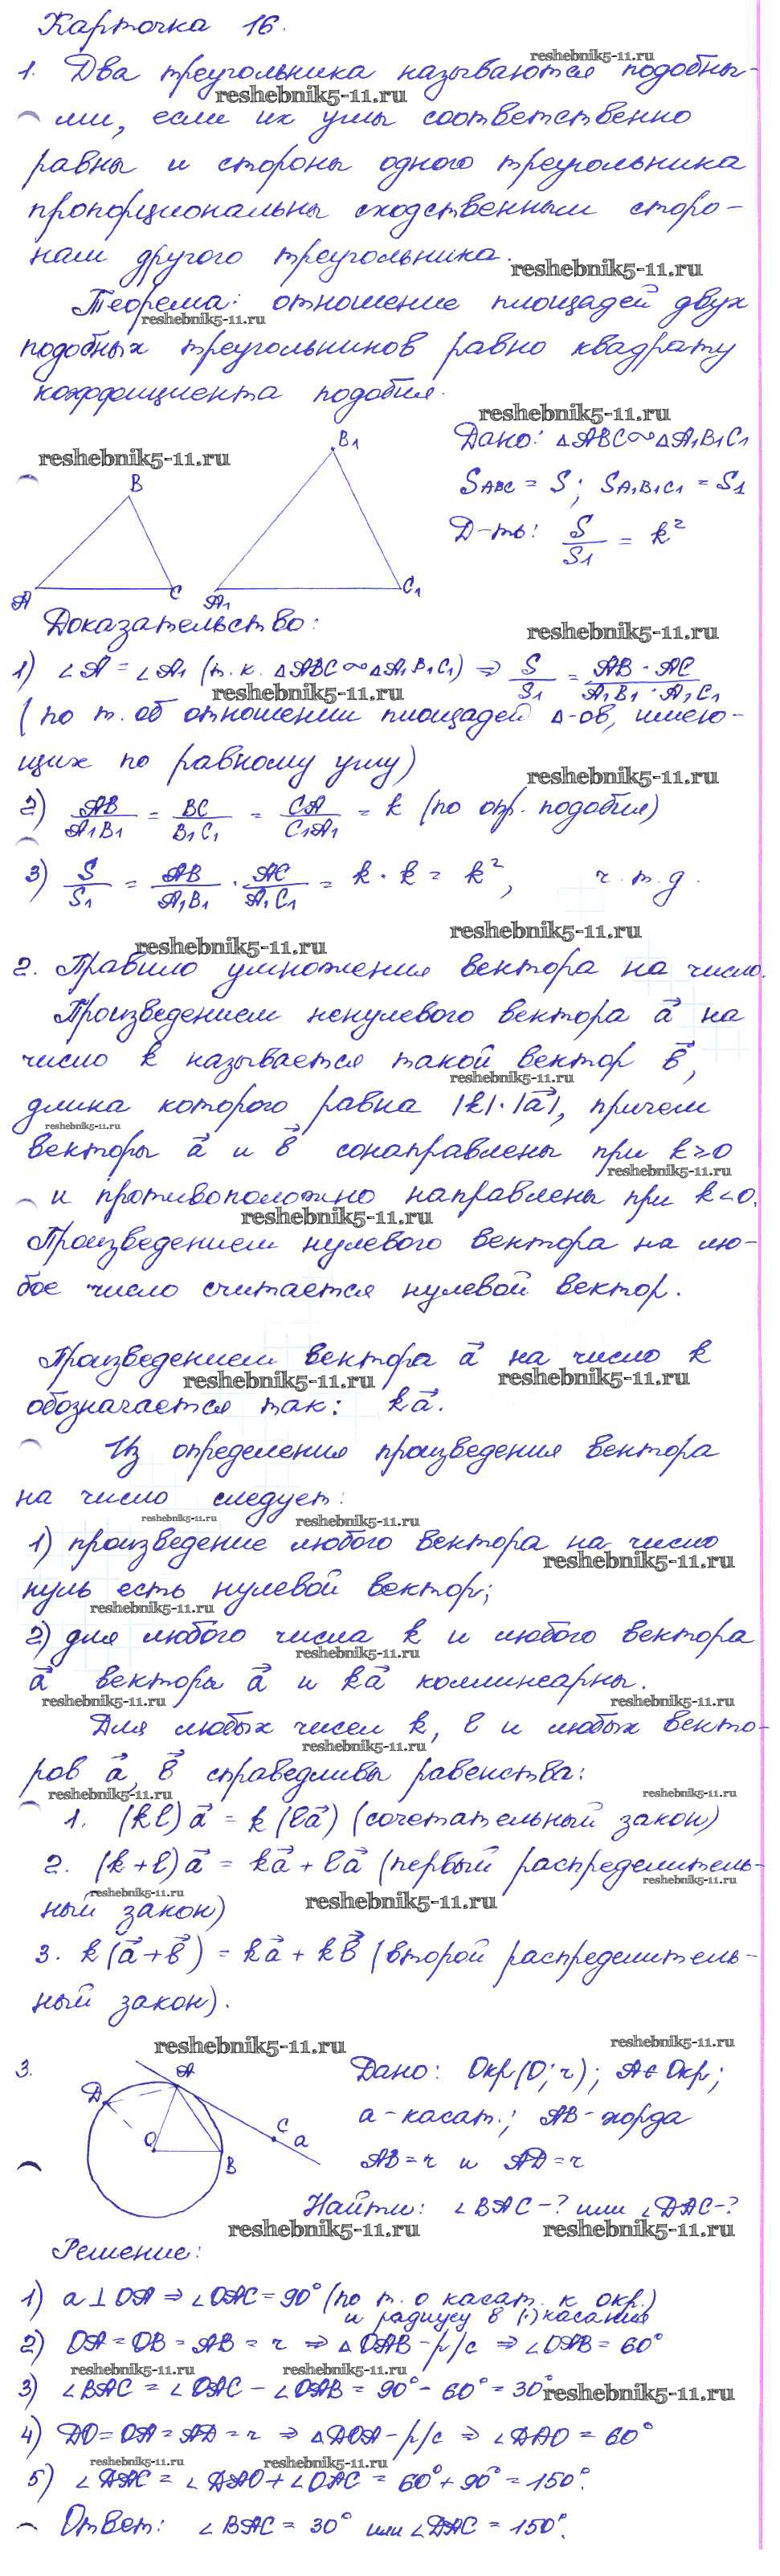 Карточка 16.
reshebnik5-11.ru
1. Два треугольника называются подобны-
reshebnik5-11.ru
ми, если их углы соответственно
равны и стороны одного треугольника
пропорциональны сходственным сторо-
нам другого треугольника.
reshebnik5-11.ru
Теорема: отношение площадей двух
reshebnik5-11.ru
подобных треугольников равно квадрату
коэффициента подобия.
reshebnik5-11.ru
Дано: △ABC∾△A₁B₁C₁
reshebnik5-11.ru
S_ABC = S; S_A₁B₁C₁ = S₁
Д-ть: S/S₁ = k²
A B C
A₁ B₁ C₁
Доказательство:
reshebnik5-11.ru
1) ∠A = ∠A₁ (т.к. △ABC∾△A₁B₁C₁) ⇒ S/S₁ = AB · AC/A₁B₁ · A₁C₁
reshebnik5-11.ru
(по т. об отношении площадей △-ов, имею-
щих по равному углу)
reshebnik5-11.ru
2) AB/A₁B₁ = BC/B₁C₁ = CA/C₁A₁ = k (по опр. подобия)
3) S/S₁ = AB/A₁B₁ · AC/A₁C₁ = k · k = k², ч.т.д.
reshebnik5-11.ru
reshebnik5-11.ru
2. Правило умножения вектора на число.
Произведением ненулевого вектора a⃗ на
число k называется такой вектор b⃗,
reshebnik5-11.ru
длина которого равна |k|·|a⃗|, причем
reshebnik5-11.ru
векторы a⃗ и b⃗ сонаправлены при k≥0
reshebnik5-11.ru
и противоположно направлены при k<0.
reshebnik5-11.ru
Произведением нулевого вектора на лю-
бое число считается нулевой вектор.
Произведением вектора a⃗ на число k
reshebnik5-11.ru
reshebnik5-11.ru
обозначается так: ka⃗.
Из определения произведения вектора
на число следует:
reshebnik5-11.ru
reshebnik5-11.ru
1) произведение любого вектора на число
reshebnik5-11.ru
нуль есть нулевой вектор;
reshebnik5-11.ru
2) для любого числа k и любого вектора
reshebnik5-11.ru
a⃗ векторы a⃗ и ka⃗ коллинеарны.
reshebnik5-11.ru
reshebnik5-11.ru
Для любых чисел k, l и любых векто-
reshebnik5-11.ru
ров a⃗, b⃗ справедливы равенства:
reshebnik5-11.ru
reshebnik5-11.ru
1. (kl)a⃗ = k(la⃗) (сочетательный закон)
2. (k+l)a⃗ = ka⃗ + la⃗ (первый распределитель-
reshebnik5-11.ru
reshebnik5-11.ru
ный закон)
reshebnik5-11.ru
3. k(a⃗+b⃗) = ka⃗ + kb⃗ (второй распределитель-
ный закон).
reshebnik5-11.ru
reshebnik5-11.ru
3.
D A O B C a
Дано: Окр(O; r); A∈Окр;
a-касат.; AB-хорда
AB=r и AD=r
Найти: ∠BAC-? или ∠DAC-?
reshebnik5-11.ru
reshebnik5-11.ru
Решение:
1) a⊥OA ⇒ ∠OAC=90° (по т. о касат. к окр.)
и радиусу в (·) касания
2) OA=OB=AB=r ⇒ △OAB-р/с ⇒ ∠OAB=60°
reshebnik5-11.ru
reshebnik5-11.ru
3) ∠BAC = ∠OAC - ∠OAB = 90° - 60° = 30°
reshebnik5-11.ru
4) DO=OA=AD=r ⇒ △DOA-р/с ⇒ ∠DAO=60°
reshebnik5-11.ru
reshebnik5-11.ru
5) ∠DAC = ∠DAO+∠OAC = 60°+90°=150°.
Ответ: ∠BAC=30° или ∠DAC=150°.